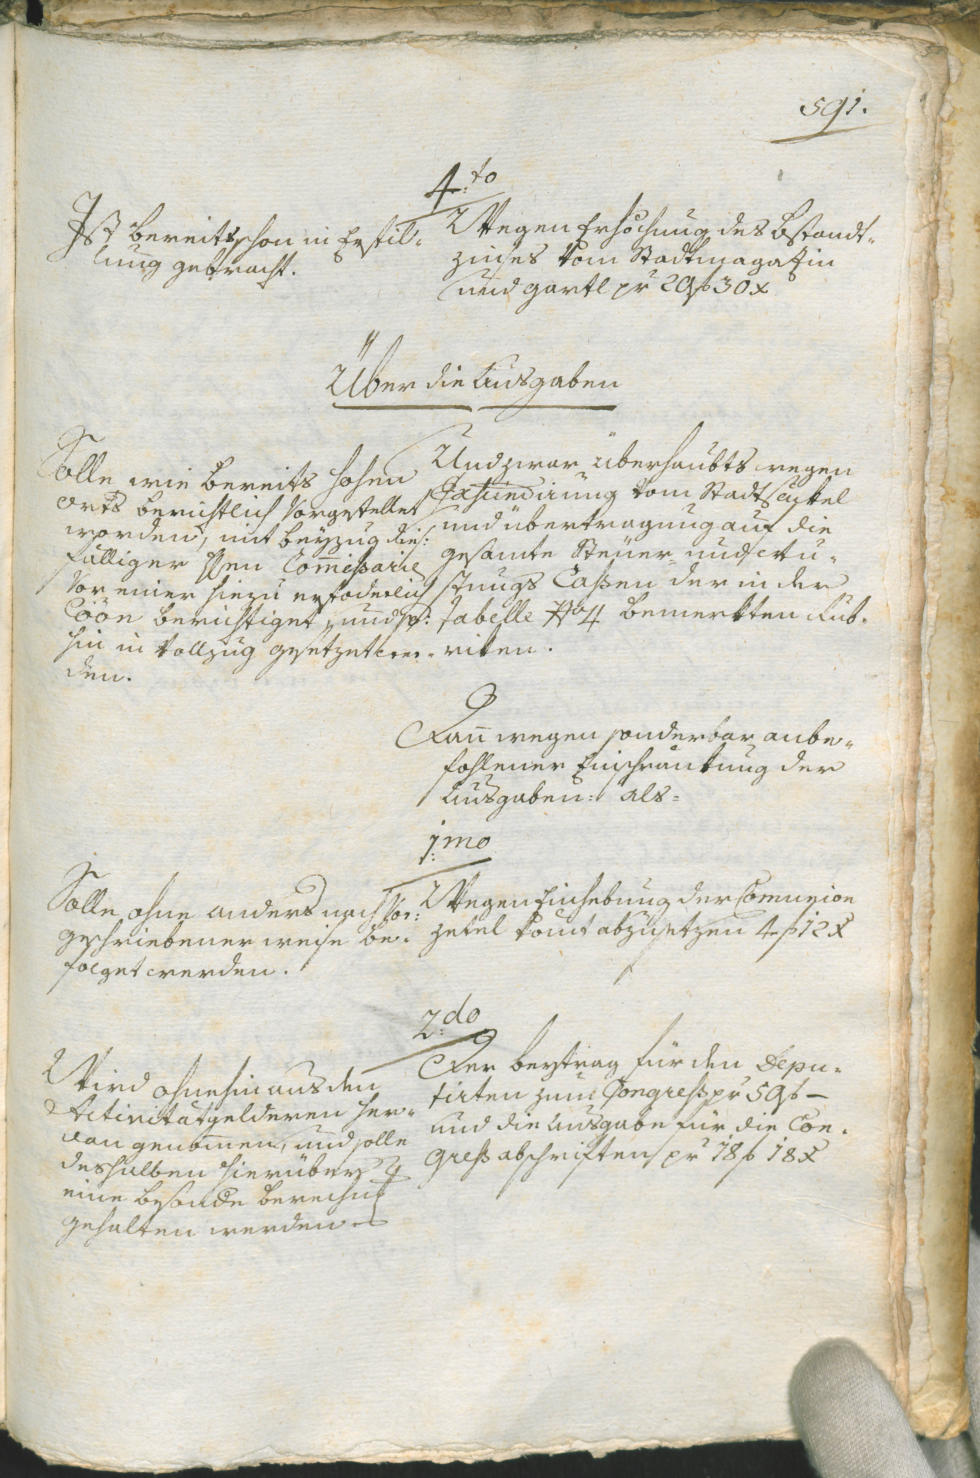 591.
4:to
Ist bereits schon in Erfül-
lung gebracht.
Wegen Erhöchung des bstandt-
zinses vom Stadtmagazin
und gartl pr 29 f 30 x
Über die Ausgaben
Solle wie bereits hohen
orts berichtlich vorgestellet
worden, mit beyzug die:
fälliger Hen Comissarie
vor einer hiezu erforderlich
Cõon berichtiget, und so:
hin in vollzug gesetzet wer-
den.
Und zwar überhaubts wegen
Exscindirung vom Stadtseckel
und übertragung auf die
gesamte Steuer- und
stungs Cassen der in der
tabelle No 4 bemerkten Rub-
riken.
Dan wegen sonderbar anbe-
fohlener Einschränkung der
Ausgaben: als=
1:mo
Solle ohne anders nach vor:
geschriebener weise be-
folget werden.
Wegen Einhebung der Comunion
zetel komt abzusetzen 4 f 12 x
2:do
Wird ohnehin aus den
Activitätgelderen her-
dan genomen, und solle
deshalben hierüber
eine besonde berechn
gehalten werden
Der beytrag für den Depu-
tirten zum Congress pr 59 f –
und die Ausgabe für die Con-
gress abschriften pr 18 f 18 x